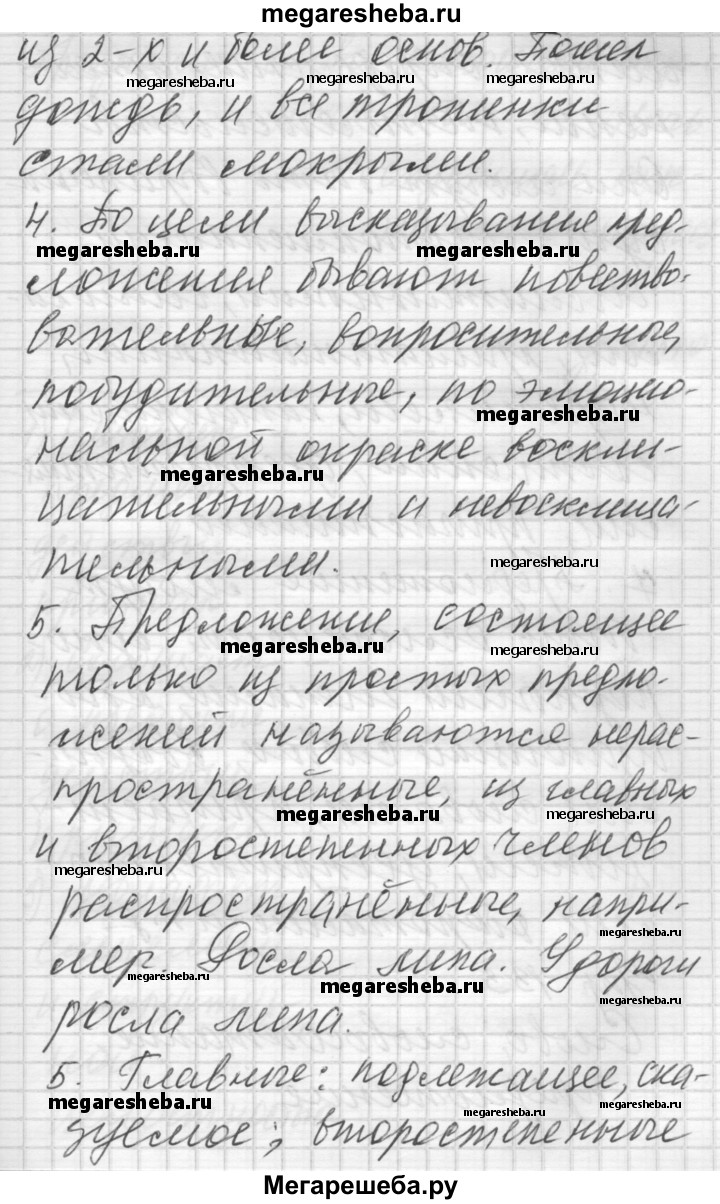 megaresheba.ru
из 2-х и более основ. Пошел
megaresheba.ru megaresheba.ru megaresheba.ru
дождь, и все тропинки
стали мокрыми.
4. По цели высказывания пред-
megaresheba.ru megaresheba.ru
ложения бывают повество-
вательные, вопросительные,
побудительные, по эмоцио-
megaresheba.ru
нальной окраске воскли-
megaresheba.ru
цательными и невосклица-
тельными.
megaresheba.ru
5. Предложение, состоящее
megaresheba.ru megaresheba.ru
только из простых предло-
жений называются нерас-
пространённые, из главных
megaresheba.ru megaresheba.ru
и второстепенных членов
megaresheba.ru
распространённые, напри-
megaresheba.ru
мер. Росла липа. У дороги
megaresheba.ru
megaresheba.ru
megaresheba.ru
росла липа.
5. Главные: подлежащее, ска-
megaresheba.ru megaresheba.ru megaresheba.ru
зуемое; второстепенные
Мегарешеба.ру